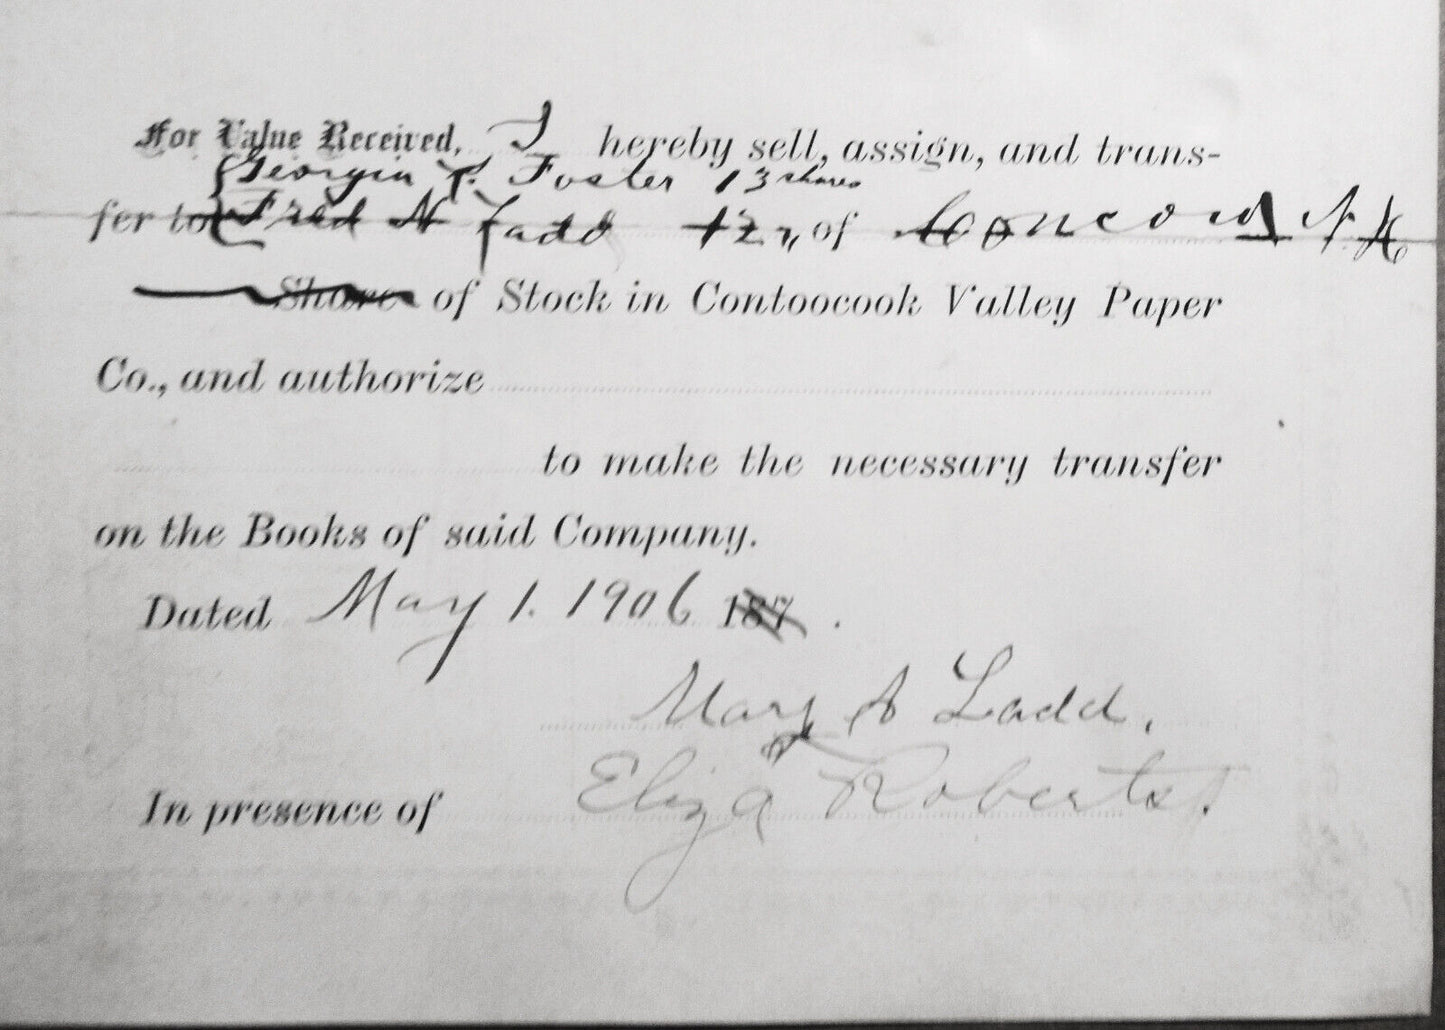 For Value Received, I hereby sell, assign, and trans-
Georgia P. Foster 13 shares
fer to Fred N Ladd 12 " of Concord N H
Shares of Stock in Contoocook Valley Paper
Co., and authorize
to make the necessary transfer
on the Books of said Company.
Dated May 1. 1906 187 .
Mary A Ladd.
In presence of Eliza Roberts.